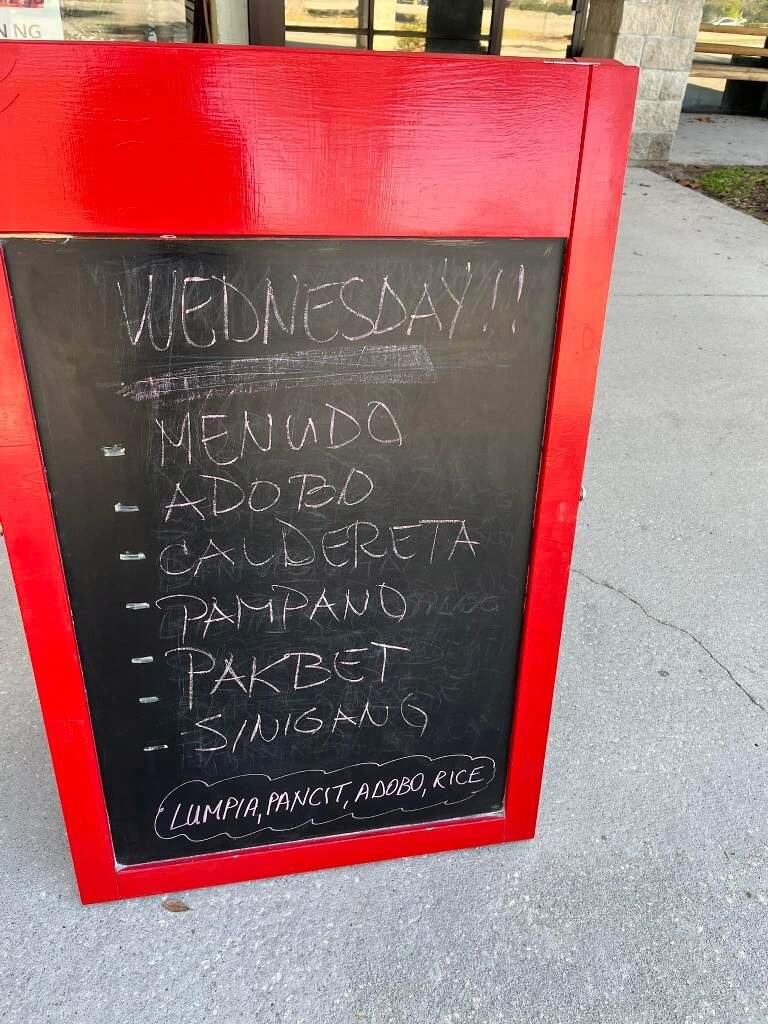 NING
WEDNESDAY!!
- MENUDO
- ADOBO
- CALDERETA
- PAMPANO
- PAKBET
- SINIGANG
LUMPIA, PANCIT, ADOBO, RICE